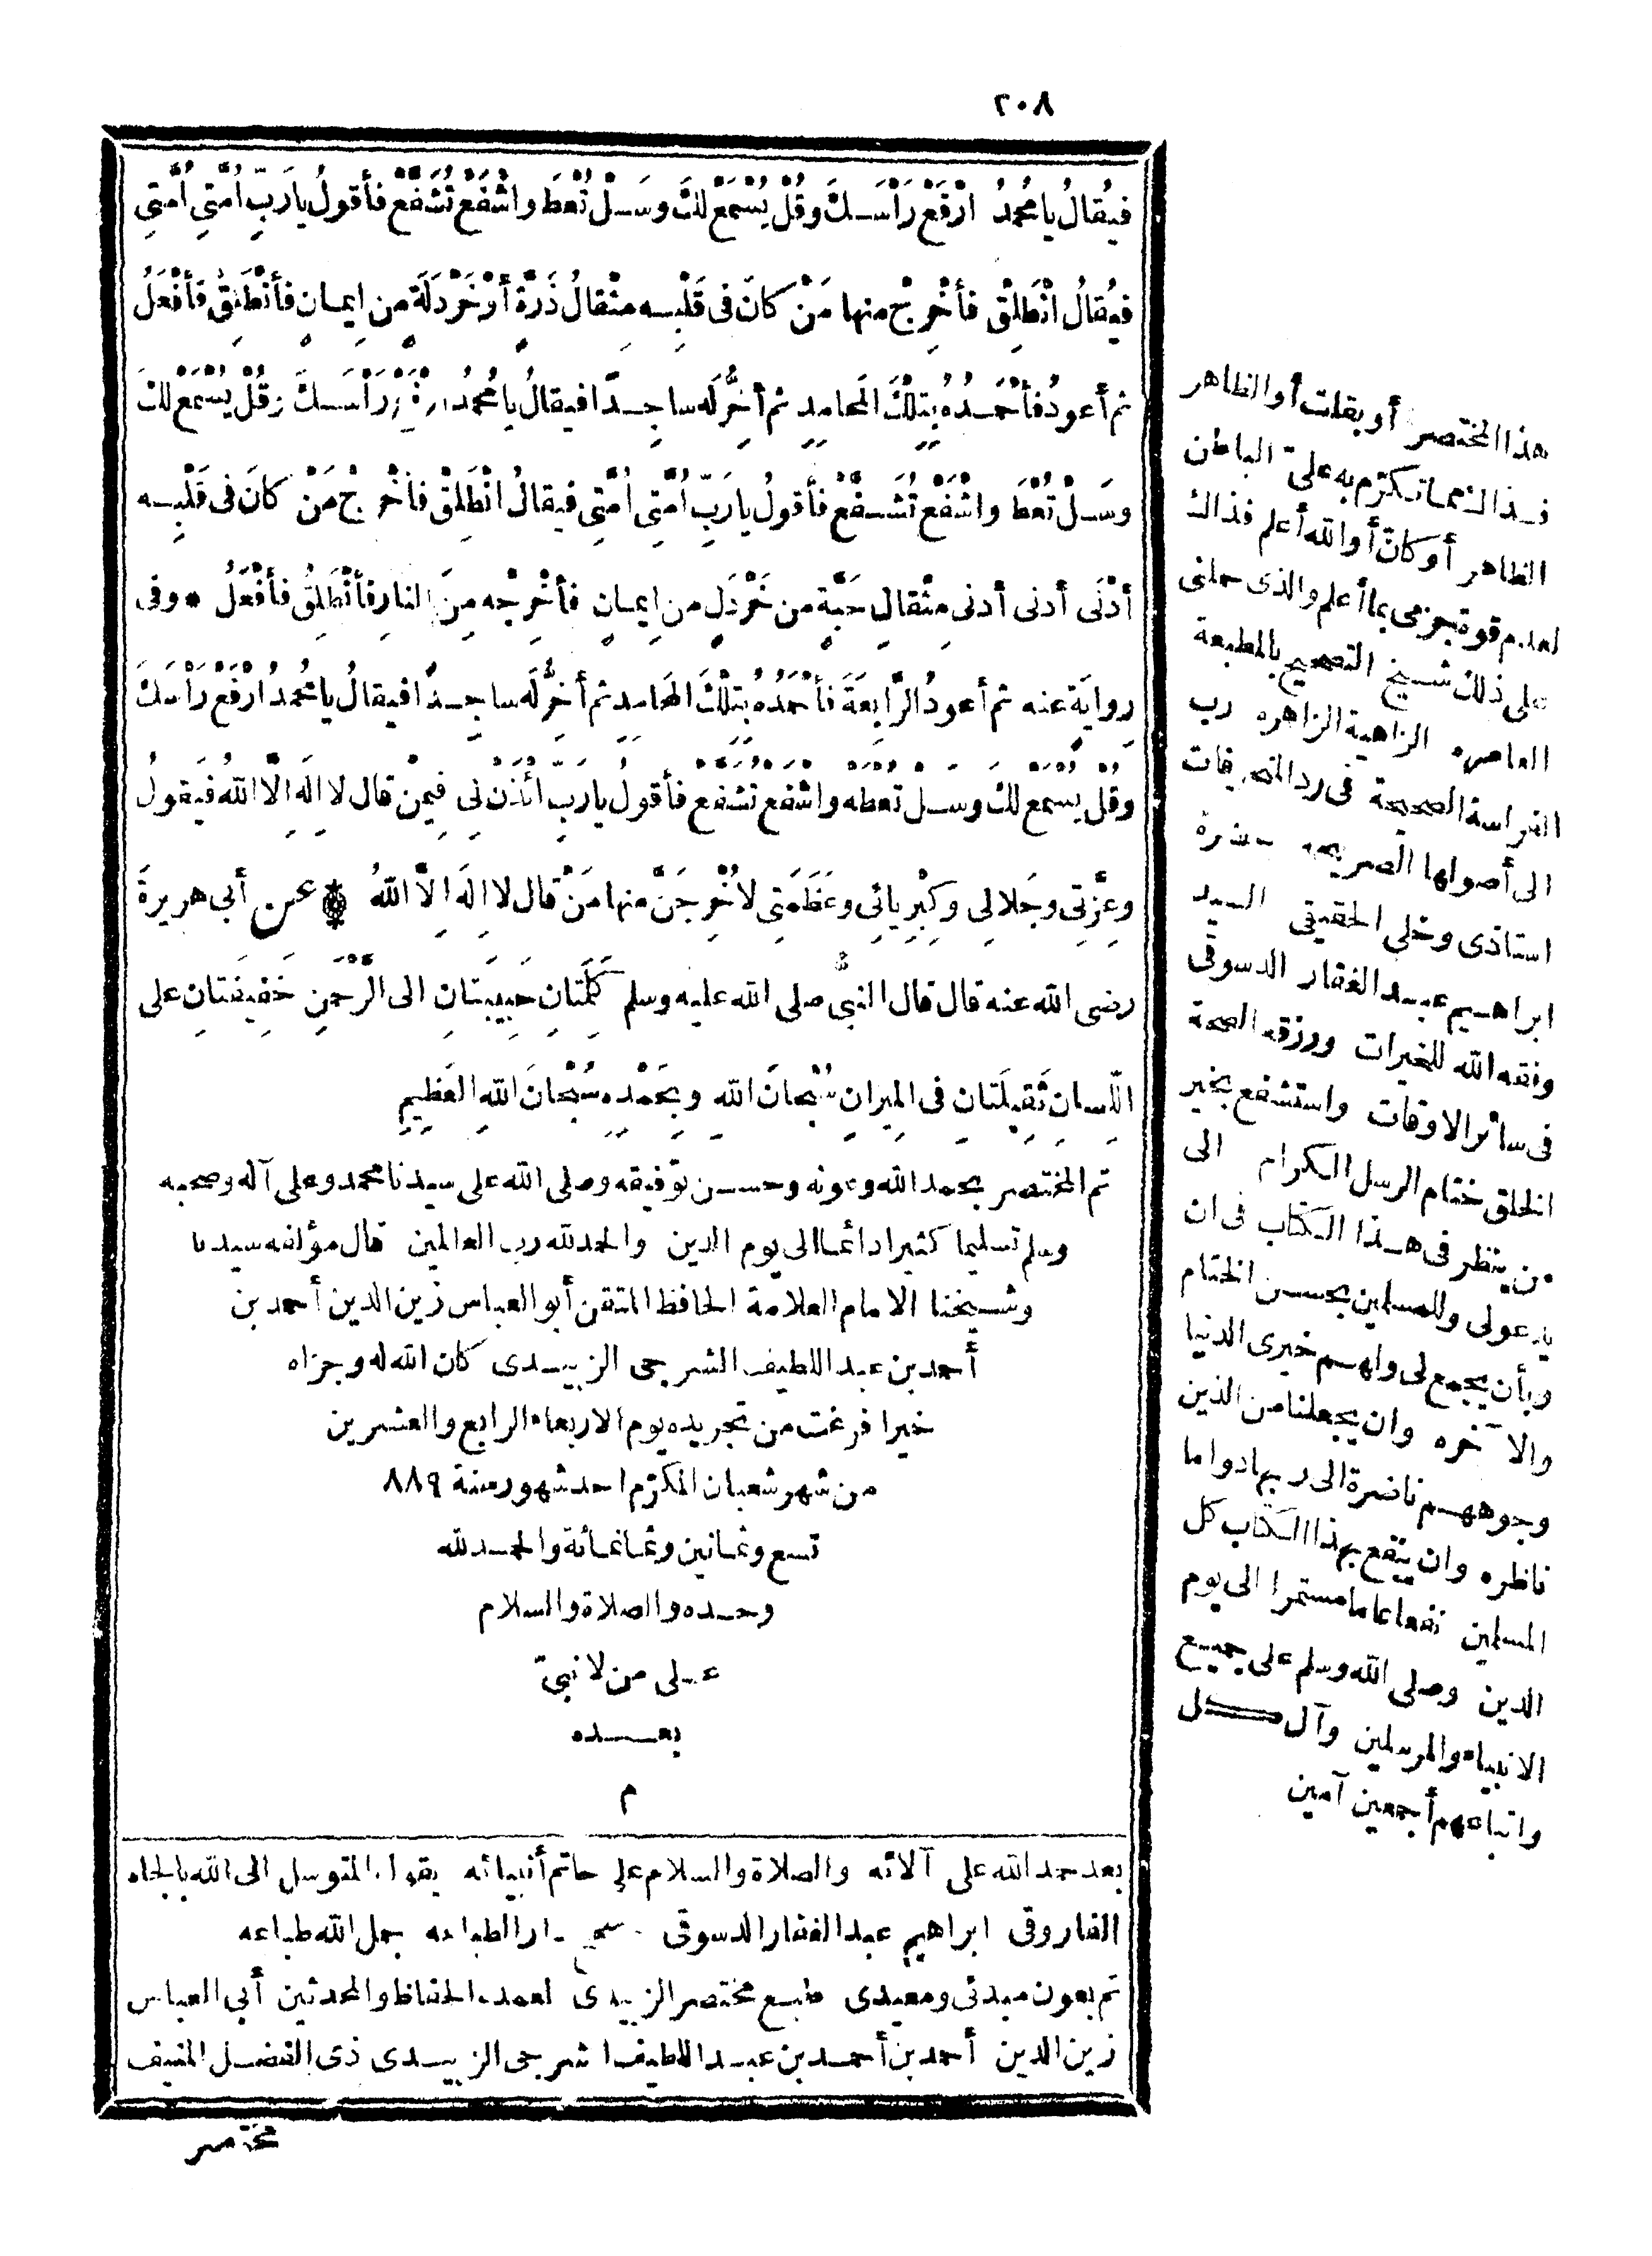 ٢٠٨
فيُقالُ يا مُحمدُ ارْفَعْ رَأْسَكَ وقُلْ يُسْمَعْ لَكَ وسَلْ تُعْطَ واشْفَعْ تُشَفَّعْ فأقولُ يا رَبِّ أُمَّتِي أُمَّتِي
فيُقالُ انْطَلِقْ فأَخْرِجْ منها مَنْ كانَ فى قَلْبِه مِثْقالُ ذَرَّةٍ أوْ خَرْدَلَةٍ من إيمانٍ فأنْطَلِقُ فأفْعَلُ
ثم أعودُ فأحْمَدُهُ بتِلْكَ المَحامِدِ ثم أخِرُّ لَه ساجِدًا فيقالُ يا مُحمدُ ارْفَعْ رَأْسَكَ وقُلْ يُسْمَعْ لَكَ
وسَلْ تُعْطَ واشْفَعْ تُشَفَّعْ فأقولُ يا رَبِّ أُمَّتِي أُمَّتِي فيقالُ انْطَلِقْ فأخْرِجْ مَنْ كانَ فى قَلْبِه
أدْنَى أدنى أدنى مِثْقالِ حَبَّةٍ من خَرْدَلٍ من إيمانٍ فأخْرِجْه مِنَ النارِ فأنْطَلِقُ فأفْعَلُ • وفى
رِوايَةٍ عنه ثم أعودُ الرَّابِعَةَ فأحْمَدُهُ بتِلْكَ المَحامِدِ ثم أخِرُّ لَه ساجِدًا فيقالُ يا مُحمدُ ارْفَعْ رَأْسَكَ
وقُلْ يُسْمَعْ لَكَ وسَلْ تُعْطَهْ واشْفَعْ تُشَفَّعْ فأقولُ يا رَبِّ ائْذَنْ لِي فِيمَنْ قال لا إلَهَ إلَّا اللهُ فيَقولُ
وعِزَّتِي وجَلالِي وكِبْرِيائِي وعَظَمَتِي لأُخْرِجَنَّ منها مَنْ قال لا إلَهَ إلَّا اللهُ ۞ عن أبى هريرةَ
رضى الله عنه قال قال النبىُّ صلى الله عليه وسلم كَلِمَتانِ حَبِيبَتانِ الى الرَّحْمَنِ خَفِيفَتانِ على
اللِّسانِ ثَقِيلَتانِ فى المِيزانِ سُبْحانَ اللهِ وبِحَمْدِه سُبْحانَ اللهِ العَظِيمِ
تم المختصر بحمد الله وعونه وحسن توفيقه وصلى الله على سيدنا محمد وعلى آله وصحبه
وسلم تسليما كثيرا دائما الى يوم الدين والحمد لله رب العالمين قال مؤلفه سيدنا
وشيخنا الامام العلامة الحافظ المتقن أبو العباس زين الدين أحمد بن
أحمد بن عبد اللطيف الشرجى الزبيدى كان الله له وجزاه
خيرا فرغت من تجريده يوم الاربعاء الرابع والعشرين
من شهر شعبان المكرّم احد شهور سنة ٨٨٩
تسع وثمانين وثمانمائة والحمد لله
وحده والصلاة والسلام
على من لا نبىّ
بعده
م
بعد حمد الله على آلائه والصلاة والسلام على خاتم أنبيائه يقول المتوسل الى الله بالجاه
الفاروقى ابراهيم عبد الغفار الدسوقى دار الطباعه جمل الله طباعه
تم بعون مبدئى ومعيدى طبع مختصر الزبيدى لعمدة الحفاظ والمحدثين أبى العباس
زين الدين أحمد بن أحمد بن عبد اللطيف الشرجى الزبيدى ذى الفضل المنيف
مختصر
هذا المختصر أو بقلت أو الظاهر
فذاك مما تكرّم به علىّ الباطن
الظاهر أو كأنّ أو الله أعلم فذاك
لعدم قوة جزمى بما أعلم والذى حملنى
على ذلك شيخ التصحيح بالمطبعة
العامره الزاهية الزاهره رب
الفراسة الصحيحة فى رد التصريفات
الى أصولها الصريحه حضرة
استاذى وخلى الحقيقى السيد
ابراهيم عبد الغفار الدسوقى
وفقه الله للخيرات ورزقه الصحة
فى سائر الاوقات واستشفع بخير
الخلق ختام الرسل الكرام الى
من ينظر فى هذا الكتاب فى ان
يدعو لى وللمسلمين بحسن الختام
وبأن يجمع لى ولهم خيرى الدنيا
والآخره وان يجعلنا من الذين
وجوههم ناضرة الى ربها دواما
ناظره وان ينفع بهذا الكتاب كل
المسلمين نفعا عاما مستمرا الى يوم
الدين وصلى الله وسلم على جميع
الانبياء والمرسلين وآل كل
واتباعهم أجمعين آمين